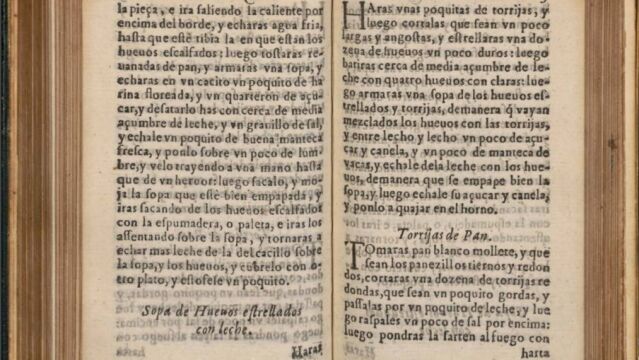 la pieça, e ira saliendo la caliente por
encima del borde, y echaras agua fria,
hasta que este tibia la en que están los
hueuos escalfados: luego tostaras re-
uanadas de pan, y armaras vna sopa, y
echaras en vn cacito vn poquito de ha
rina floreada, y vn quarteron de açu-
car, y desatarlo has con cerca de media
açumbre de leche, y vn granillo de sal,
y echale vn poquito de buena manteca
fresca, y ponlo sobre vn poco de lum-
bre, y velo trayendo a vna mano hasta
que de vn heruor: luego sacalo, y mo-
ja la sopa que esté bien empapada, y
iras sacando de los hueuos escalfados
con la espumadera, o paleta, e iras los
assentando sobre la sopa, y tornaras a
echar mas leche de la del cacillo sobre
la sopa, y los hueuos, y cubrelo con o-
tro plato, y estofese vn poquito.
Sopa de Hueuos estrellados
con leche.
Haras
HAras vnas poquitas de torrijas, y
luego cortalas que sean vn poco
largas y angostas, y estrellaras vna do-
zena de hueuos vn poco duros: luego
batiras cerca de media açumbre de le-
che con quatro hueuos con claras: lue-
go armaras vna sopa de los hueuos es-
trellados y torrijas, demanera q̃ vayan
mezclados los hueuos con las torrijas,
y entre lecho y lecho vn poco de açu-
car y canela, y vn poco de manteca de
vacas, y echale dela leche con los hue-
uos, demanera que se empape bien la
sopa, y luego echale su açucar y canela,
y ponlo a quajar en el horno.
Torrijas de Pan.
TOmaras pan blanco mollete, y que
sean los panezillos tiernos y redon
dos, cortaras vna dozena de torrijas re
dondas, que sean vn poquito gordas, y
passalas por vn poquito de leche, y lue
go raspales vn poco de sal por encima:
luego pondras la sarten al fuego con
harta